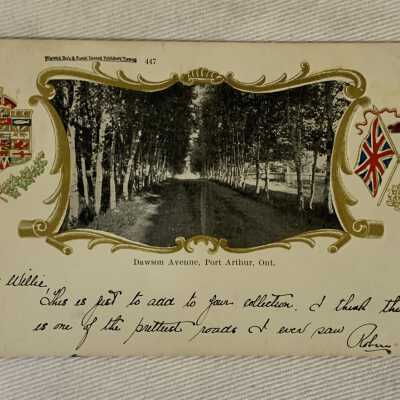 Warwick Bro's & Rutter, Limited, Publishers, Toronto 447
Dawson Avenue, Port Arthur, Ont.
Willie,
This is just to add to your collection. I think this
is one of the prettiest roads I ever saw